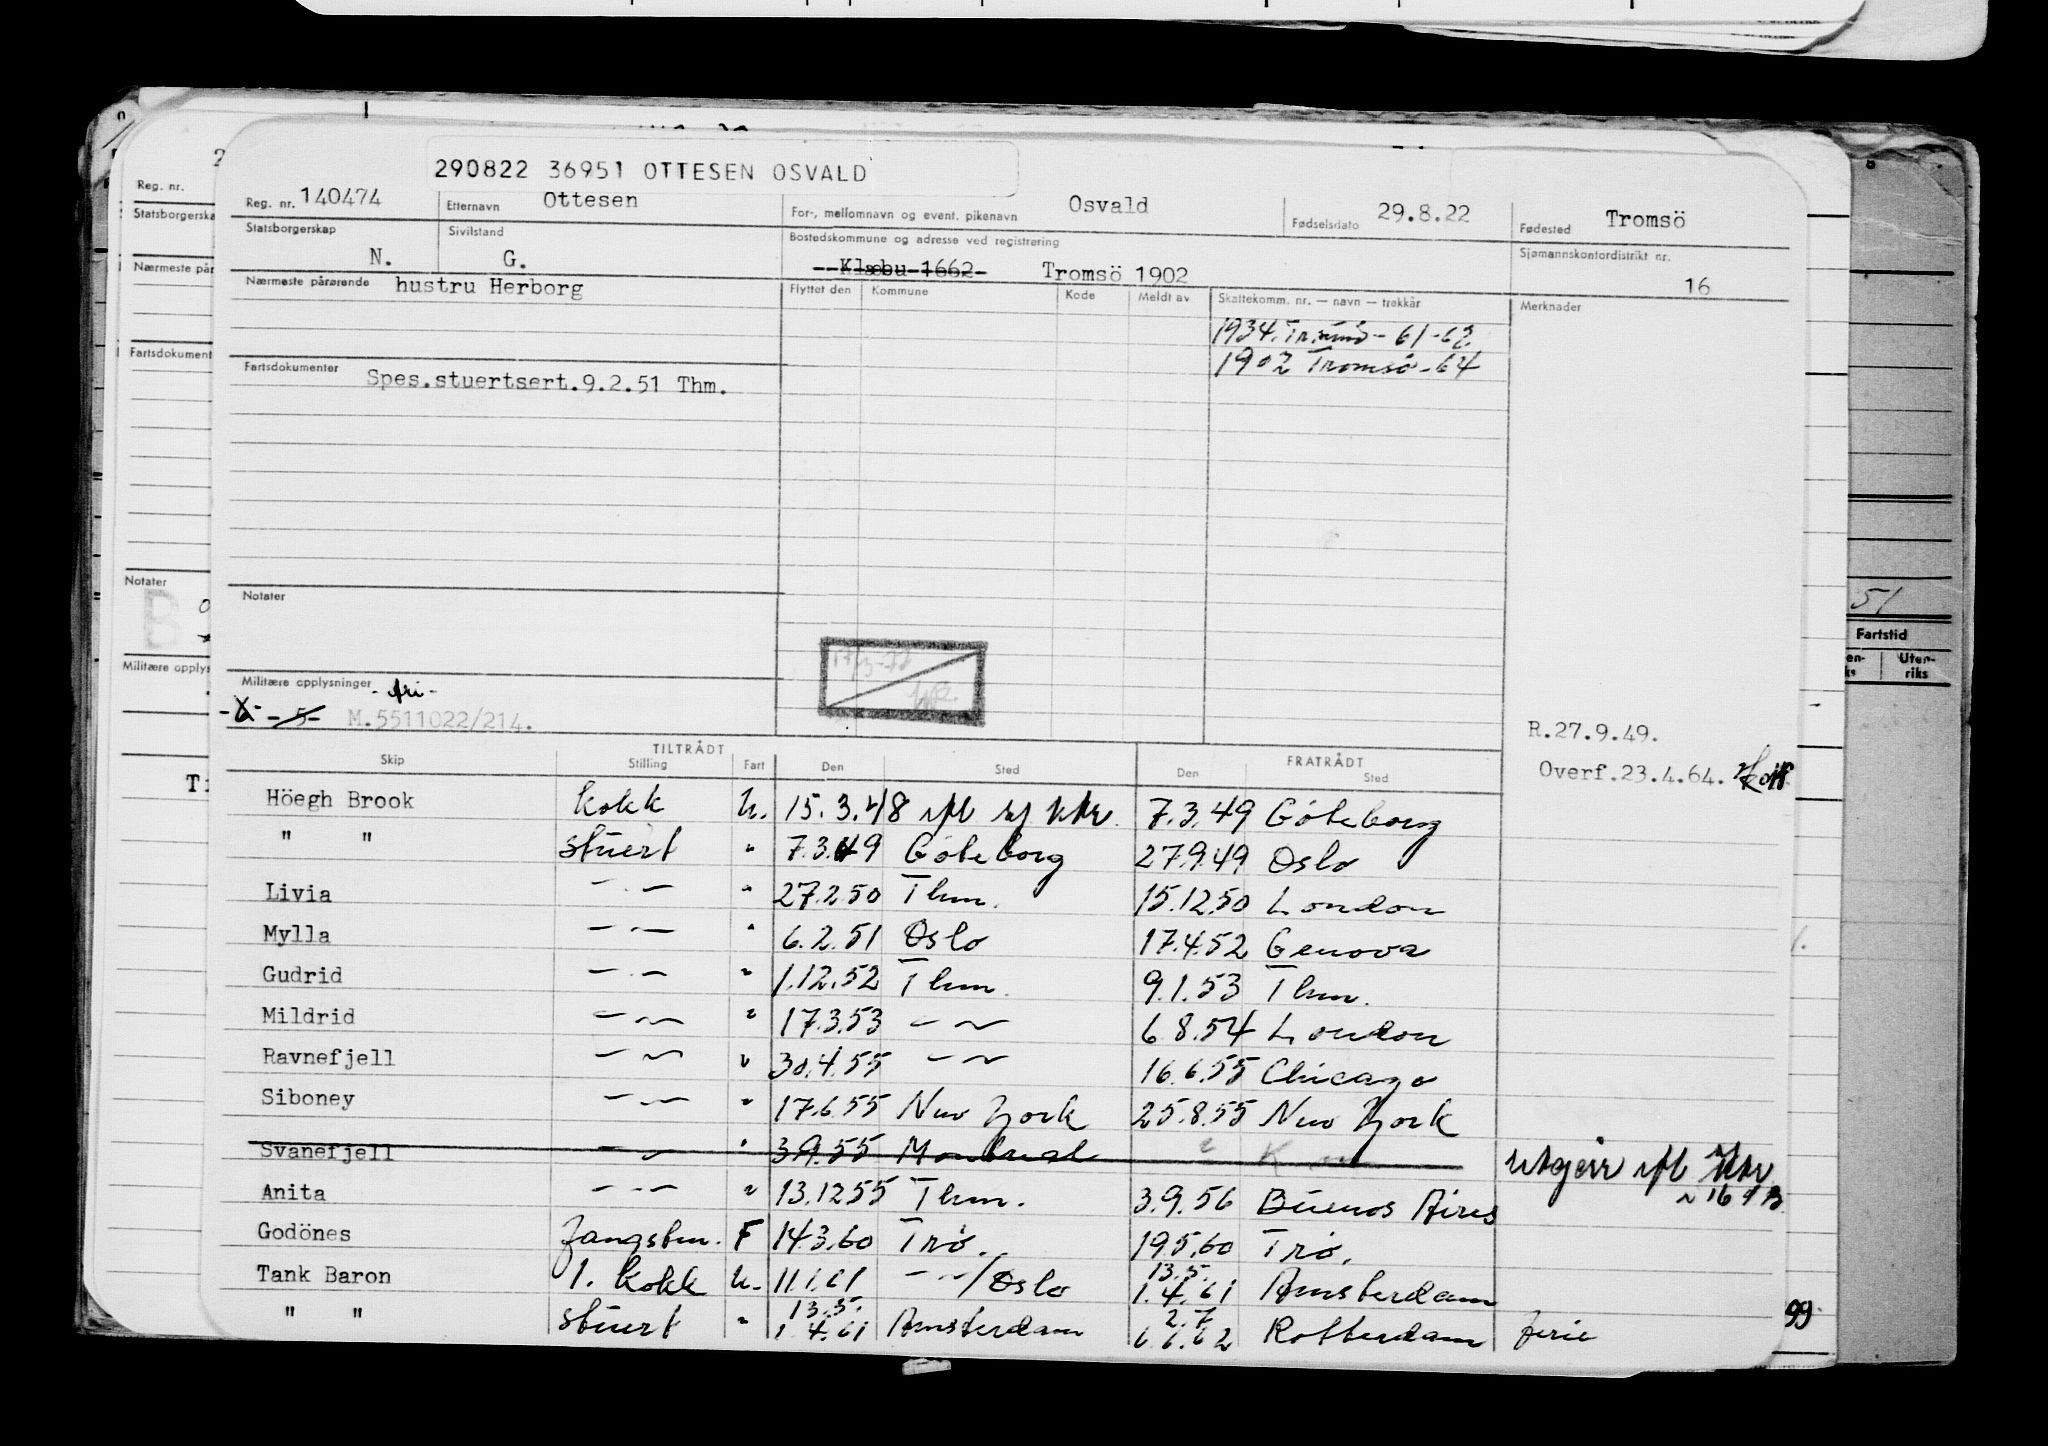 290822 36951 OTTESEN OSVALD
Reg. nr. 140474 Etternavn Ottesen For-, mellomnavn og event. pikenavn Osvald Fødselsdato 29.8.22 Fødested Tromsö
Statsborgerskap N. Sivilstand G. Bostedskommune og adresse ved registrering Klæbu 1662 Tromsö 1902 Sjømannskontordistrikt nr. 16
Nærmeste pårørende hustru Herborg Flyttet den Kommune Kode Meldt av Skattekomm. nr. — navn — trekkår Merknader
1934. Tromsö - 61-62
1902 Tromsö - 64
Fartsdokumenter Spes.stuertsert.9.2.51 Thm.
Notater
Militære opplysninger
-5- M.5511022/214.
R.27.9.49.
Overf.23.4.64.
TILTRÅDT FRATRÅDT
Skip Stilling Fart Den Sted Den Sted
Höegh Brook kokk U. 15.3.48 7.3.49 Göteborg
" " stuert " 7.3.49 Göteborg 27.9.49 Oslo
Livia —"— " 27.2.50 Thm. 15.12.50 London
Mylla —"— " 6.2.51 Oslo 17.4.52 Genova
Gudrid —"— " 1.12.52 Thm. 9.1.53 Thm.
Mildrid —"— " 17.3.53 —"— 6.8.54 London
Ravnefjell —"— " 30.4.55 —"— 16.6.55 Chicago
Siboney —"— " 17.6.55 New York 25.8.55 New York
Svanefjell —"— " 3.9.55 Montreal utgår
Anita —"— " 13.12.55 Thm. 3.9.56 Buenos Aires
Godönes Fangstm. F 14.3.60 Trø. 19.5.60 Trø.
Tank Baron 1. kokk U. 11.1.61 —"—/Oslo 13.5. 1.4.61 Amsterdam
" " stuert " 13.5. 1.4.61 Amsterdam 2.7 6.6.62 Rotterdam ferie
Reg. nr.
Statsborgerska
Nærmeste pår
Fartsdokument
Notater
Militære opplys
51
Fartstid
Uten-
riks
99